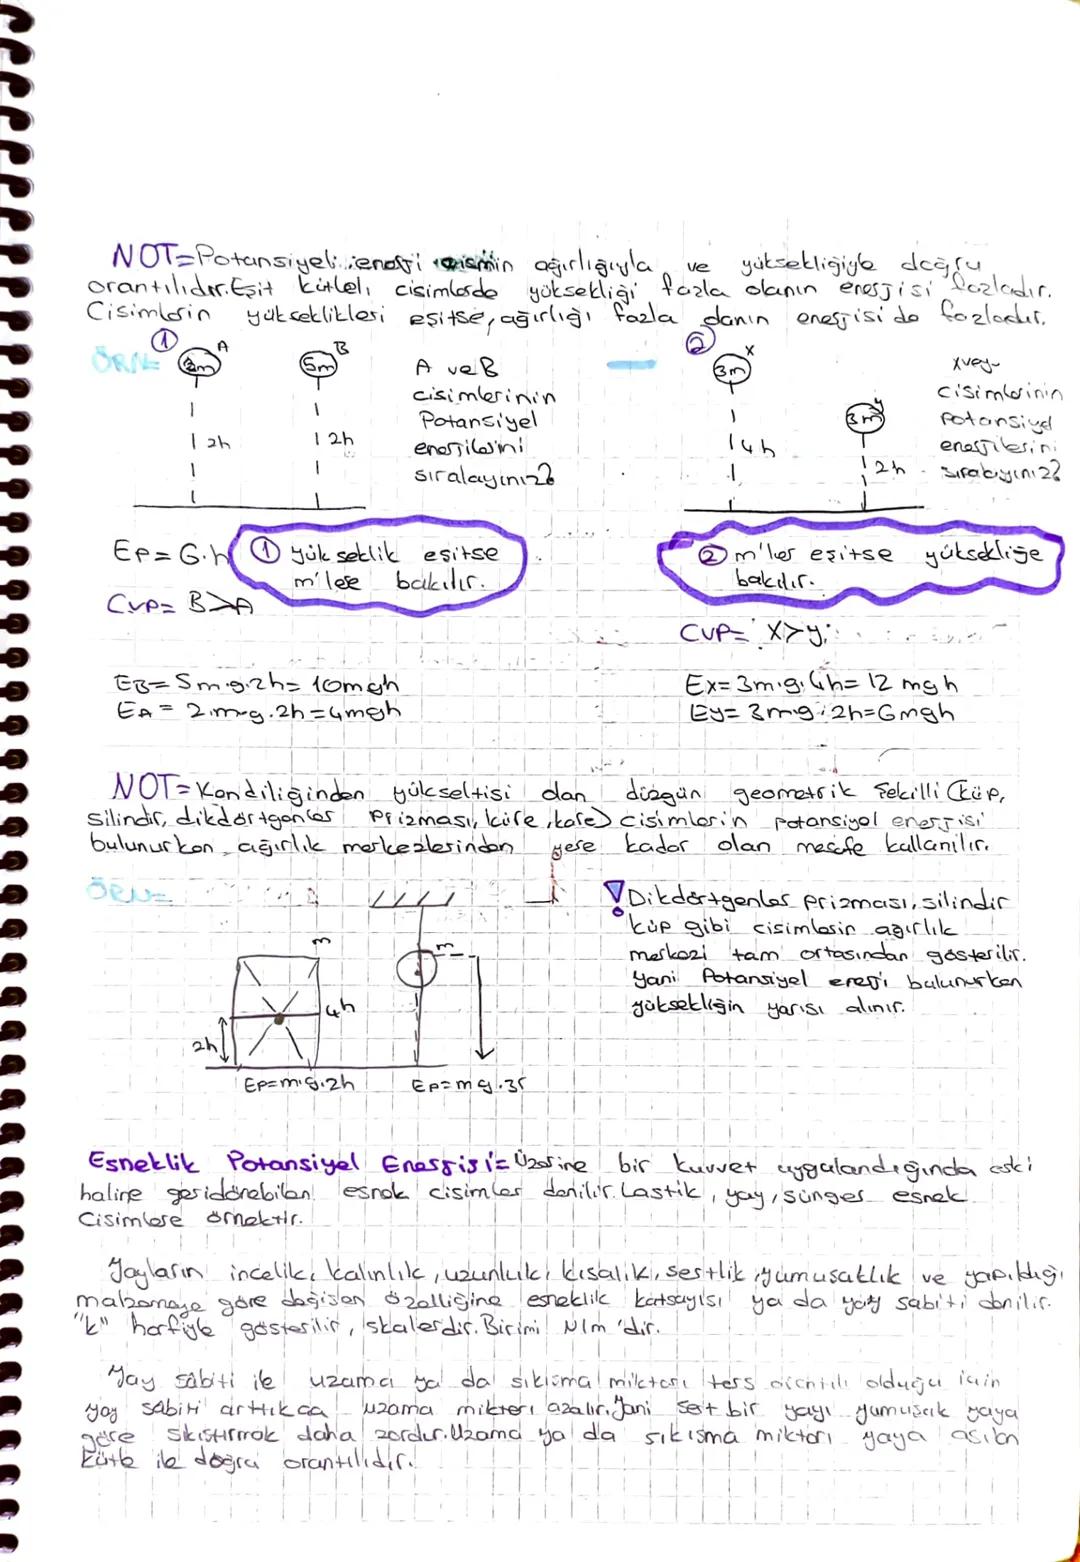 NOT=Potansiyel enerji cismin ağırlığıyla ve yüksekliğiyle doğru
orantılıdır. Eşit kütleli cisimlerde yüksekliği fazla olanın enerjisi fazladır.
Cisimlerin yükseklikleri eşitse, ağırlığı fazla olanın enerjisi de fazladır.
ÖRN= ①
2m A
5m B
2h
2h
A ve B
cisimlerinin
Potansiyel
enerjilerini
sıralayınız?
②
3m X
3m y
4h
2h
x ve y
cisimlerinin
potansiyel
enerjilerini
sıralayınız?
Ep= G.h
① yükseklik eşitse
m'lere bakılır.
CVP= B>A
② m'ler eşitse yüksekliğe
bakılır.
CVP= X>y
EB= 5m.g.2h= 10mgh
EA= 2.m.g.2h=4mgh
Ex= 3m.g.4h= 12 mgh
Ey= 3mg.2h=6mgh
NOT= Kendiliğinden yükseltisi olan düzgün geometrik şekilli (küp,
silindir, dikdörtgenler prizması, küre, kare) cisimlerin potansiyel enerjisi
bulunurken ağırlık merkezlerinden yere kadar olan mesafe kullanılır.
ÖRN=
m
4h
2h
Ep=m.g.2h
m
Ep=mg.3r
! Dikdörtgenler prizması, silindir
küp gibi cisimlerin ağırlık
merkezi tam ortasından gösterilir.
Yani Potansiyel enerji bulunurken
yüksekliğin yarısı alınır.
Esneklik Potansiyel Enerjisi= Üzerine bir kuvvet uygulandığında eski
haline geri dönebilen esnek cisimler denilir. Lastik, yay, sünger esnek
Cisimlere örnektir.
Yayların incelik, kalınlık, uzunluk, kısalık, sertlik, yumuşaklık ve yapıldığı
malzemeye göre değişen özelliğine esneklik katsayısı ya da yay sabiti denilir.
"k" harfiyle gösterilir, skalerdir. Birimi N/m 'dir.
Yay sabiti ile uzama ya da sıkışma miktarı ters orantılı olduğu için
yay sabiti arttıkça uzama miktarı azalır. Yani sert bir yayı yumuşak yaya
göre sıkıştırmak daha zordur. Uzama ya da sıkışma miktarı yaya asılan
kütle ile doğru orantılıdır.